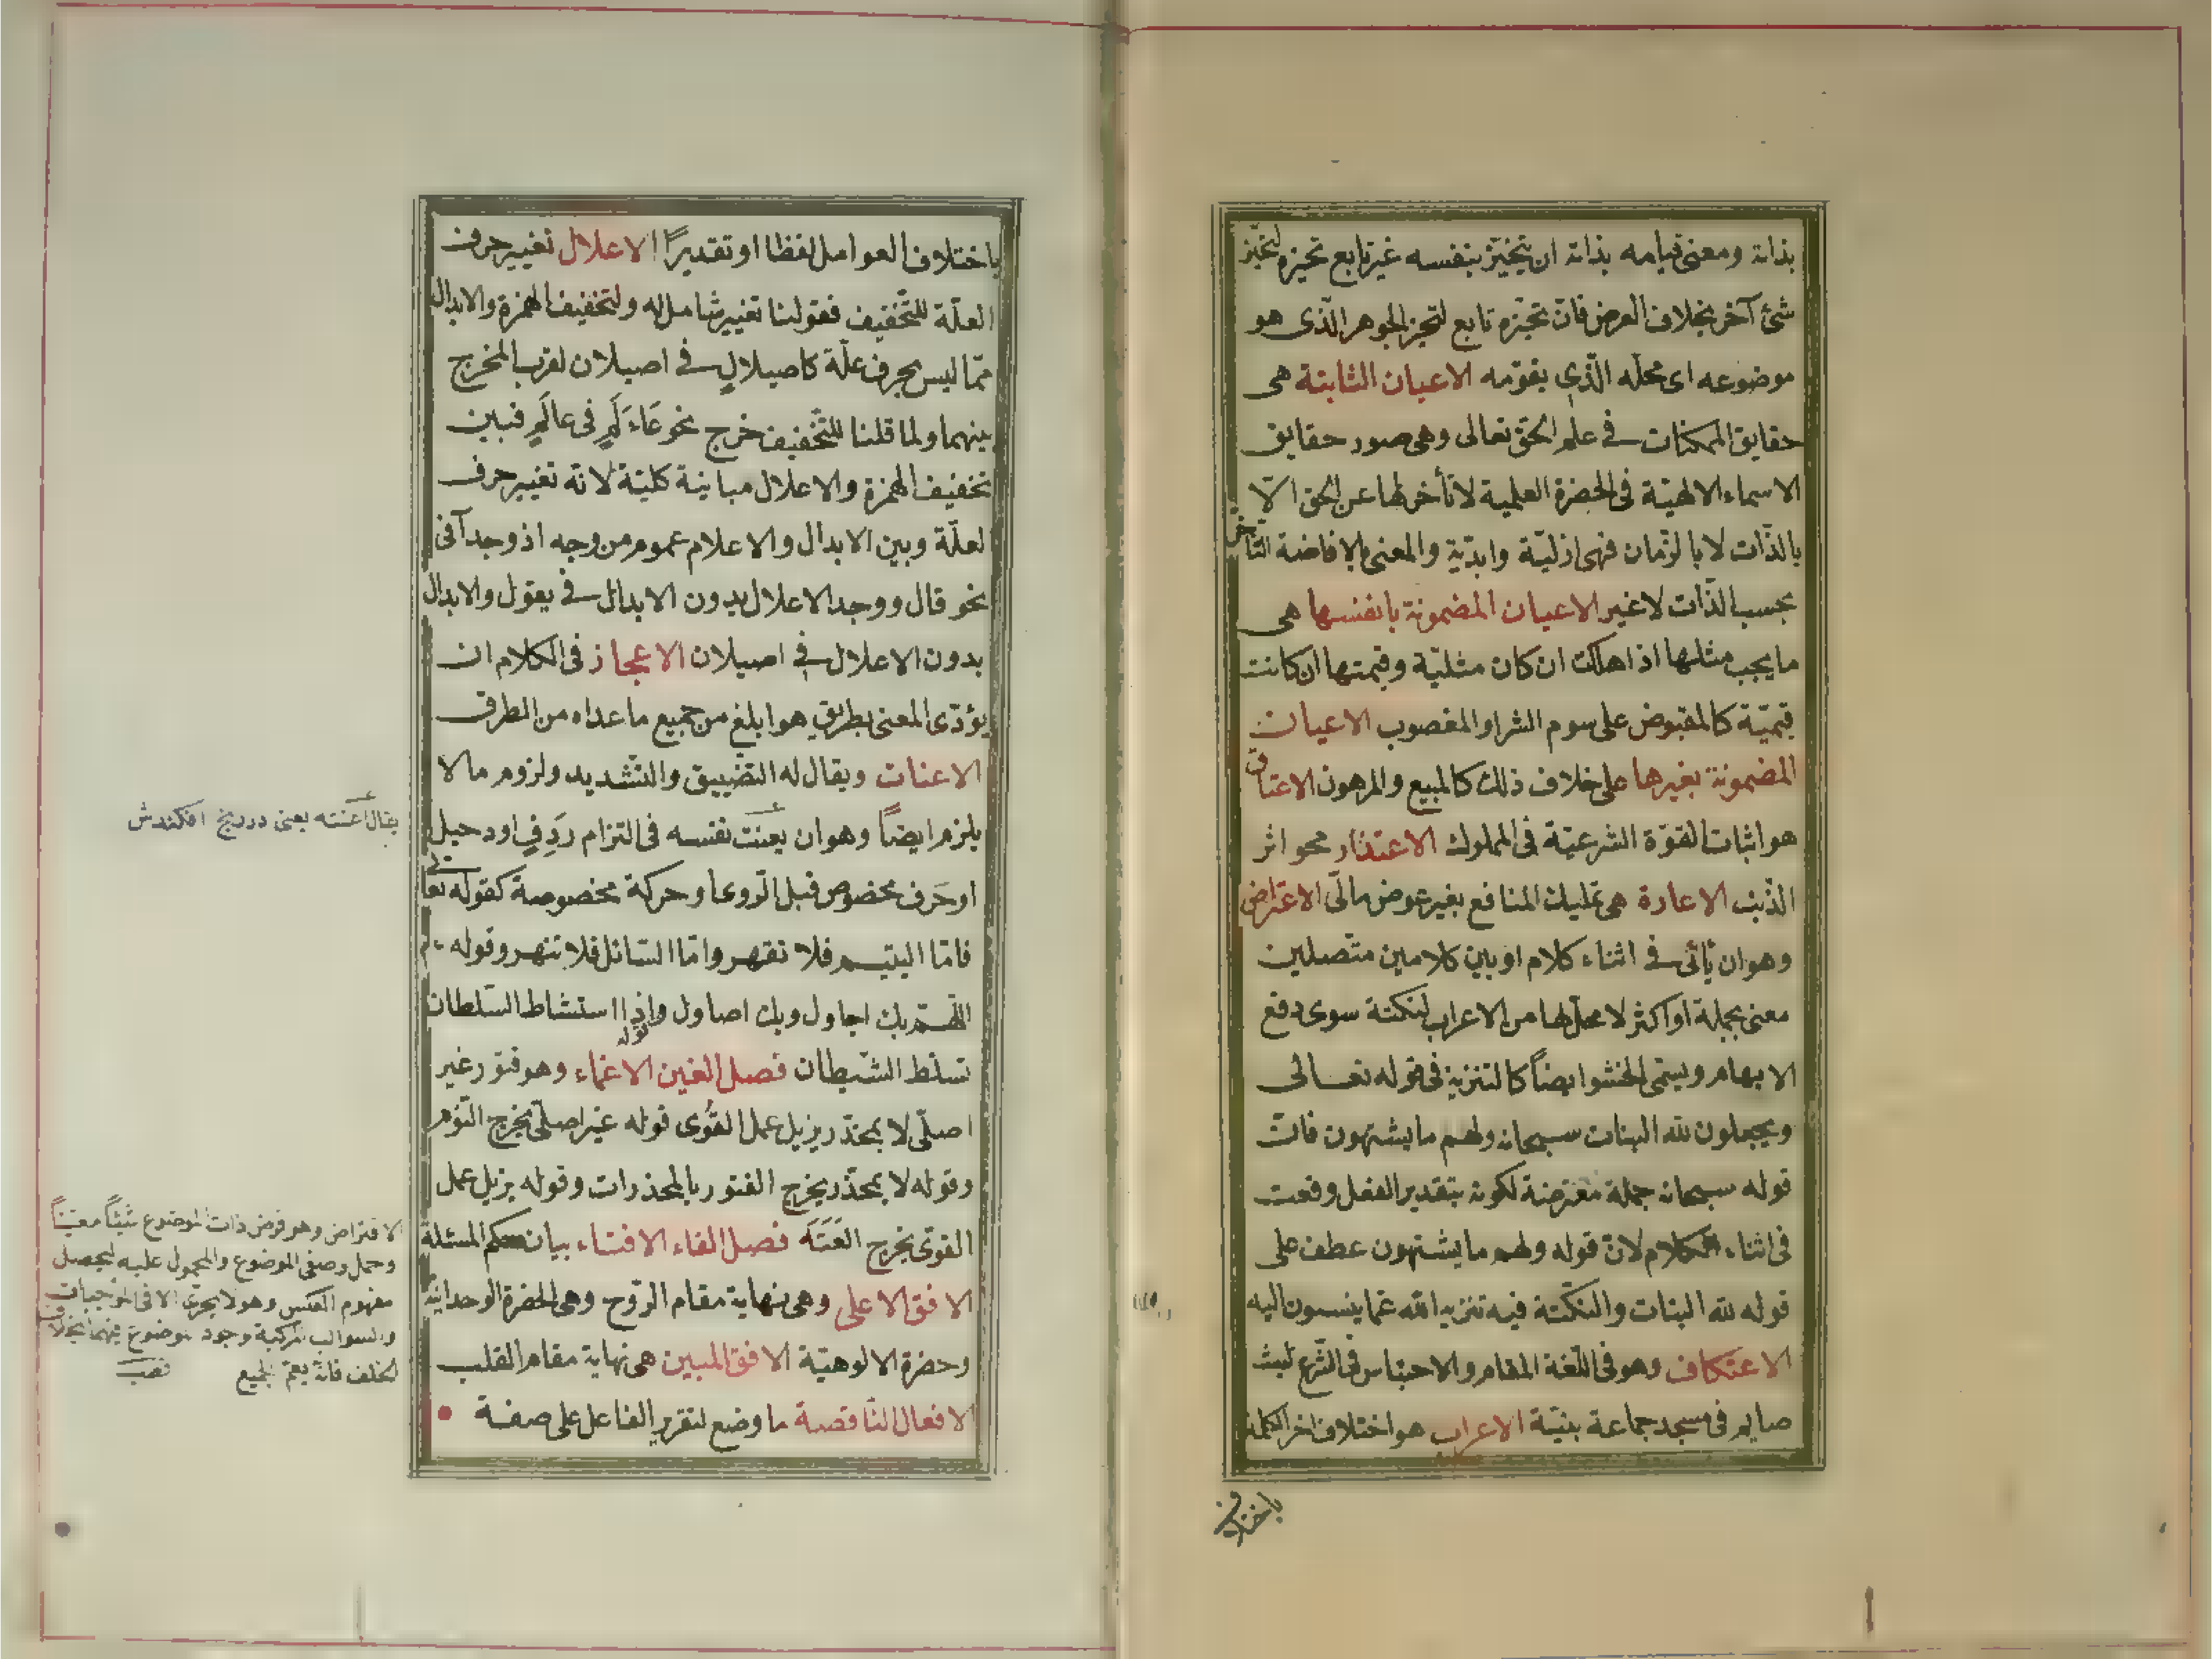 بذاته ومعنى قيامه بذاته ان يتحيّز بنفسه غير تابع تحيزه لتحيّز
شئ آخر بخلاف العرض فانّ تحيّزه تابع لتحيز الجوهر الّذى هو
موضوعه اى محلّه الّذى يقوّمه الاعيان الثابتة هى
حقايق الممكنات فے علم الحقّ تعالى وهى صور حقايق
الاسماء الالهيّة فى الحضرة العلمية لا تأخر لها عن الحق الّا
بالذّات لا بالزّمان فهى ازليّة وابديّة والمعنى بالافاضة التّاخّر
بحسب الذّات لا غير الاعيان المضمونة بانفسها هى
ما يجب مثلها اذا هلكت ان كان مثليّة وقيمتها ان كانت
قيميّة كالمقبوض على سوم الشرا والمغصوب الاعيان
المضمونة بغيرها على خلاف ذلك كالمبيع والمرهون الاعتاق
هو اثبات القوّة الشرعيّة فى المملوك الاعتذار محو اثر
الذّنب الاعارة هى تمليك المنافع بغير عوض مالّى الاعتراض
وهو ان يأتى فے اثناء كلام او بين كلامين متّصلين
معنى بجملة او اكثر لا محلّ لها من الاعراب لنكتة سوى دفع
الابهام ويسمّى الحشو ايضاً كالتنزيه فى قوله تعالى
ويجعلون لله البنات سبحانه ولهم ما يشتهون فانّ
قوله سبحانه جملة معترضة لكونه بتقدير الفعل وقعت
فى اثناء الكلام لانّ قوله ولهم ما يشتهون عطف على
قوله لله البنات والنكّتة فيه تنزيه الله عمّا ينسبون اليه
الاعتكاف وهو فى اللّغة المقام والاحتباس فى الشّرع لبث
صايم فى مسجد جماعة بنيّة الاعراب هو اختلاف اخر الكلمة
باختلاف
باختلاف العوامل لفظا او تقديراً الاعلال تغيير حرف
العلّة للتّخفيف فقولنا تغيير شامل له ولتخفيف الهمزة والابدال
ممّا ليس بحرف علّة كاصيلالٍ فے اصيلان لقرب المخرج
بينهما ولما قلنا للتّخفيف خرج نحو عَاءَلَمٍ فى عالَمٍ فبين
تخفيف الهمزة والاعلال مباينة كليّة لانّه تغيير حرف
لعلّة وبين الابدال والاعلام عموم من وجه اذ وجدا فى
نحو قال ووجد الاعلال بدون الابدال فے يقول والابدال
بدون الاعلال فے اصيلان الاعجاز فى الكلام ان
يؤدّى المعنى بطريق هو ابلغ من جميع ما عداه من الطرق
الاعنات ويقال له التضّييق والتّشديد ولزوم ما لا
يلزم ايضاً وهو ان يعنت نفسه فى التزام رَدِفٍ او دحيل
او حَرف مخصوص قبل الرّوى او حركة مخصوصة كقوله تعا
فامّا اليتيم فلا تقهر وامّا السّائل فلا تنهر وقوله
اللّهمّ بك احاول وبك اصاول وقوله واذا استشاط السّلطان
تسلّط الشّيطان فصل الغين الاغماء وهو فتور غير
اصلّى لا بمخدّر يزيل عمل القُوى قوله غير اصلّى يخرج النّوم
وقوله لا بمخدّر يخرج الفتور بالمخدرات وقوله يزيل عمل
القوى يخرج العَتَه فصل الفاء الافتاء بيان حكم المسئلة
الافق الاعلى وهى نهاية مقام الرّوح وهى الحضرة الوحدانيّة
وحضرة الالوهيّة الافق المبين هى نهاية مقام القلب
الافعال النّاقصة ما وضع لتقرير الفاعل على صفة
يقال اعنته يعنى در رنج افكندش
الافتراض وهو فرض ذات الموضوع شيئاً معيّناً
وحمل وصفى الموضوع والمحمول عليه ليحصل
مفهوم العكس وهو لا يجرى الا فى الموجبات
والسوالب المركبة وجود موضوع فيهما بخلاف
الخلف فانّه يعمّ الجميع